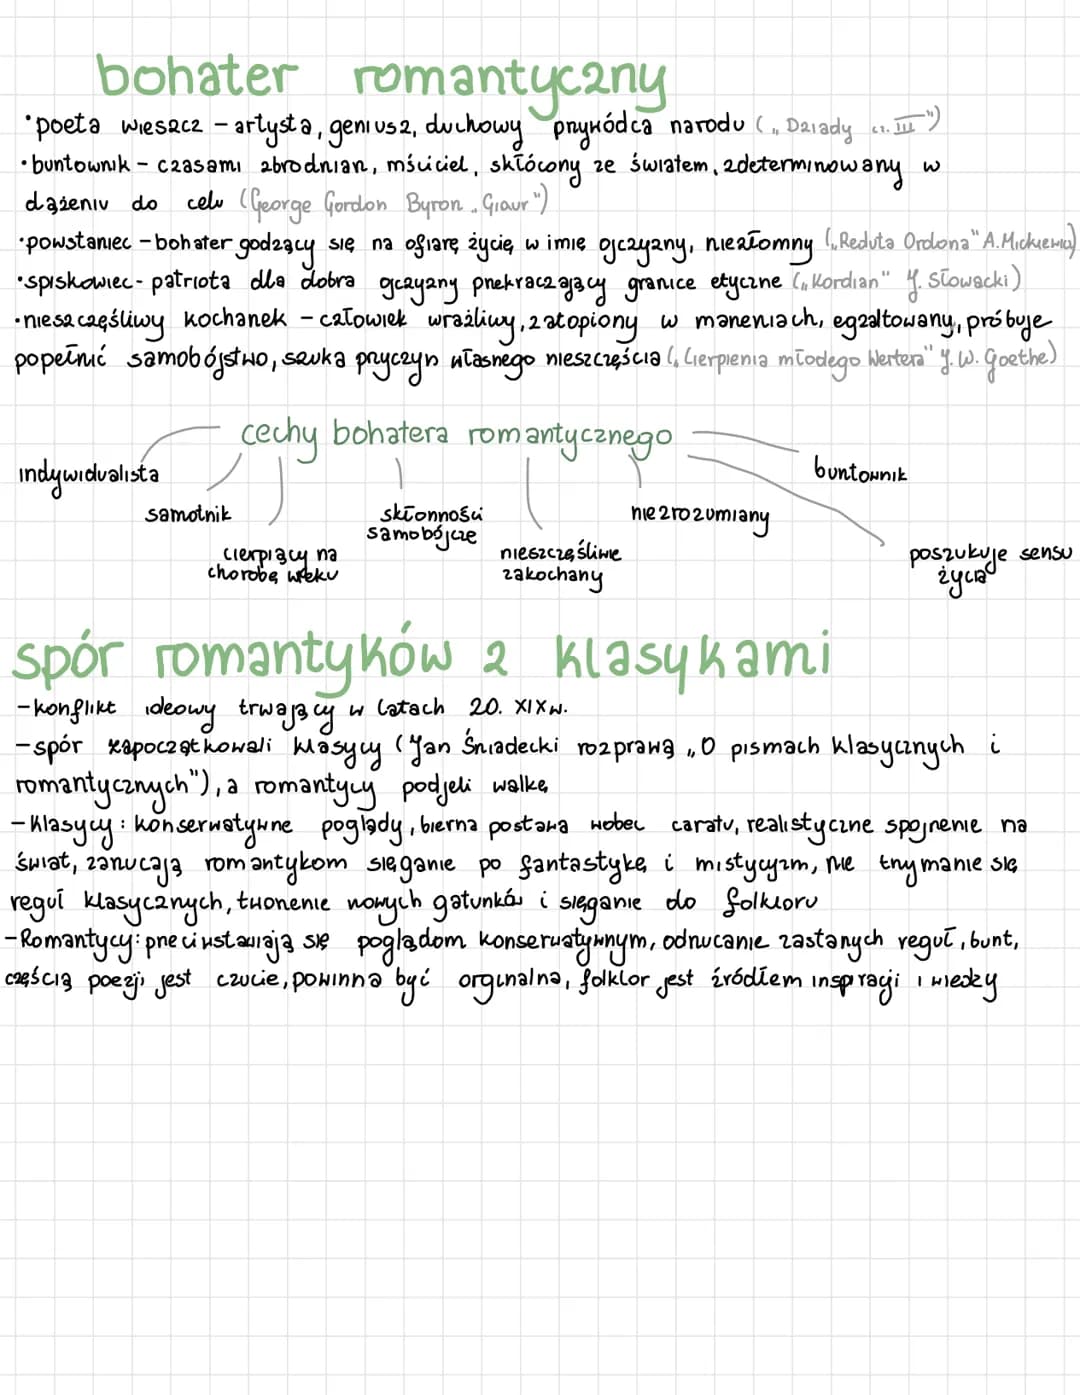 bohater romantyczny
•poeta wieszcz – artysta, geniusz, duchowy przywódca narodu („Dziady cz. III")
•buntownik – czasami zbrodniarz, mściciel, skłócony ze światem, zdeterminowany w
dążeniu do celu (George Gordon Byron „Giaur")
•powstaniec – bohater godzący się na ofiarę życię w imię ojczyzny, niezłomny („Reduta Ordona" A.Mickiewicz)
•spiskowiec- patriota dla dobra ojczyzny przekraczający granice etyczne („Kordian" J. Słowacki)
•nieszczęśliwy kochanek – człowiek wrażliwy, zatopiony w marzeniach, egzaltowany, próbuje
popełnić samobójstwo, szuka przyczyn własnego nieszczęścia („Cierpienia młodego Wertera" J. W. Goethe)
cechy bohatera romantycznego
indywidualista
buntownik
samotnik
skłonności
samobójcze
niezrozumiany
cierpiący na
chorobę wieku
nieszczęśliwie
zakochany
poszukuje sensu
życia
spór romantyków z klasykami
–konflikt ideowy trwający w latach 20. XIXw.
–spór zapoczątkowali klasycy (Jan Śniadecki rozprawą „O pismach klasycznych i
romantycznych"), a romantycy podjeli walkę
–Klasycy: konserwatywne poglądy, bierna postawa wobec caratu, realistyczne spojrzenie na
świat, zarzucają romantykom sięganie po fantastykę i mistycyzm, nie trzymanie się
reguł klasycznych, tworzenie nowych gatunków i sięganie do folkloru
–Romantycy: przeciwstawiają się poglądom konserwatywnym, odrzucanie zastanych reguł, bunt,
częścią poezji jest czucie, powinna być orginalna, folklor jest źródłem inspiracji i wiedzy